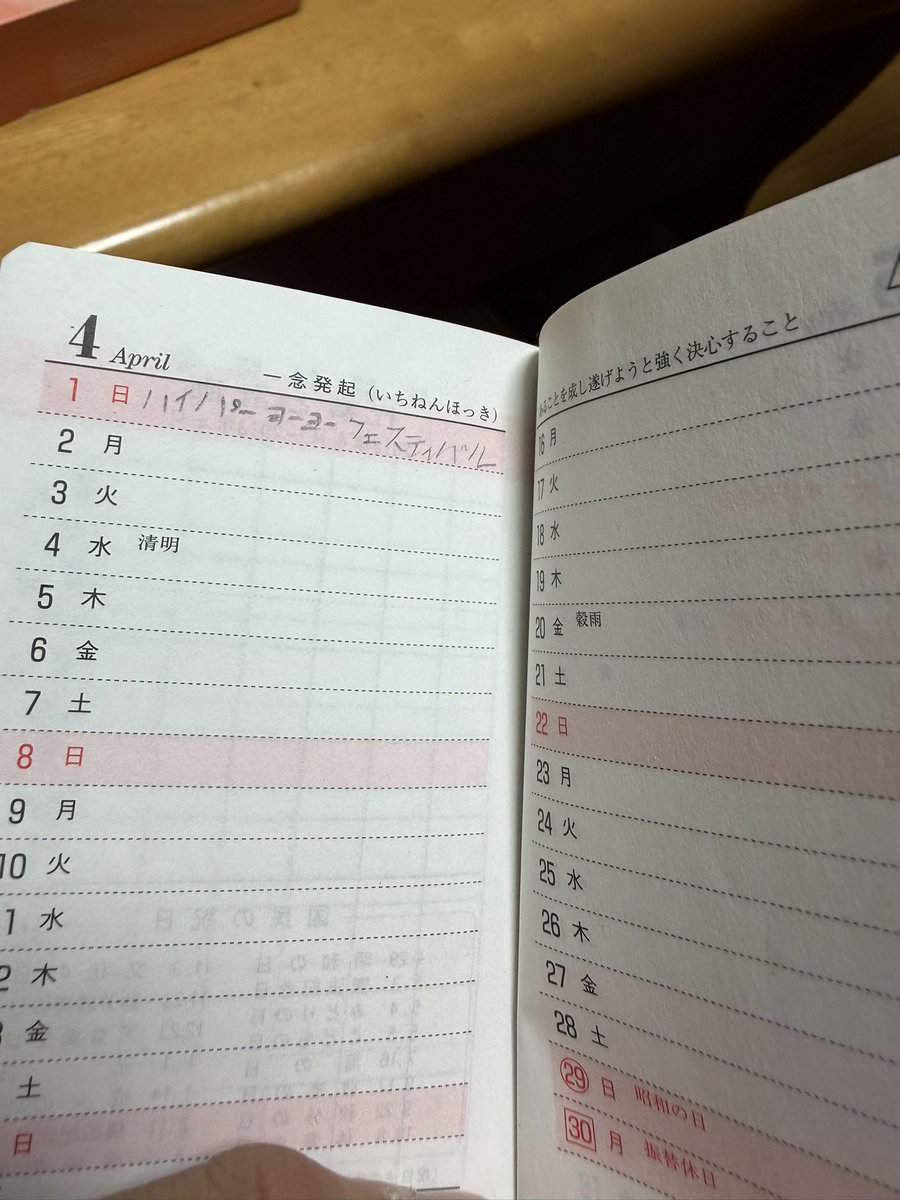 4 April
一念発起（いちねんほっき）
1 日 ハイパーヨーヨーフェスティバル
2 月
3 火
4 水 清明
5 木
6 金
7 土
8 日
9 月
10 火
1 水
2 木
金
土
日
ことを成し遂げようと強く決心すること
16 月
17 火
18 水
19 木
20 金 穀雨
21 土
22 日
23 月
24 火
25 水
26 木
27 金
28 土
29 日 昭和の日
30 月 振替休日